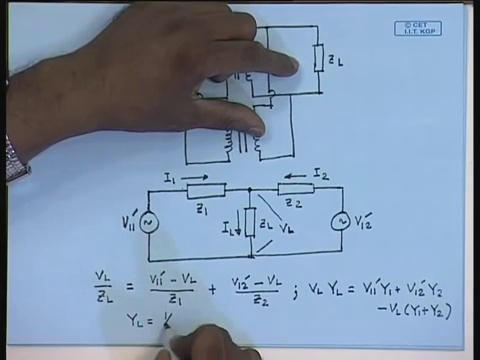 © CET
I.I.T. KGP
Z_L
I_1 → ← I_2
Z_1 Z_2
V_11' I_L ↓ Z_L V_L V_12'
V_L/Z_L = (V_11' - V_L)/Z_1 + (V_12' - V_L)/Z_2 ; V_L Y_L = V_11' Y_1 + V_12' Y_2
- V_L (Y_1 + Y_2)
Y_L = 1/